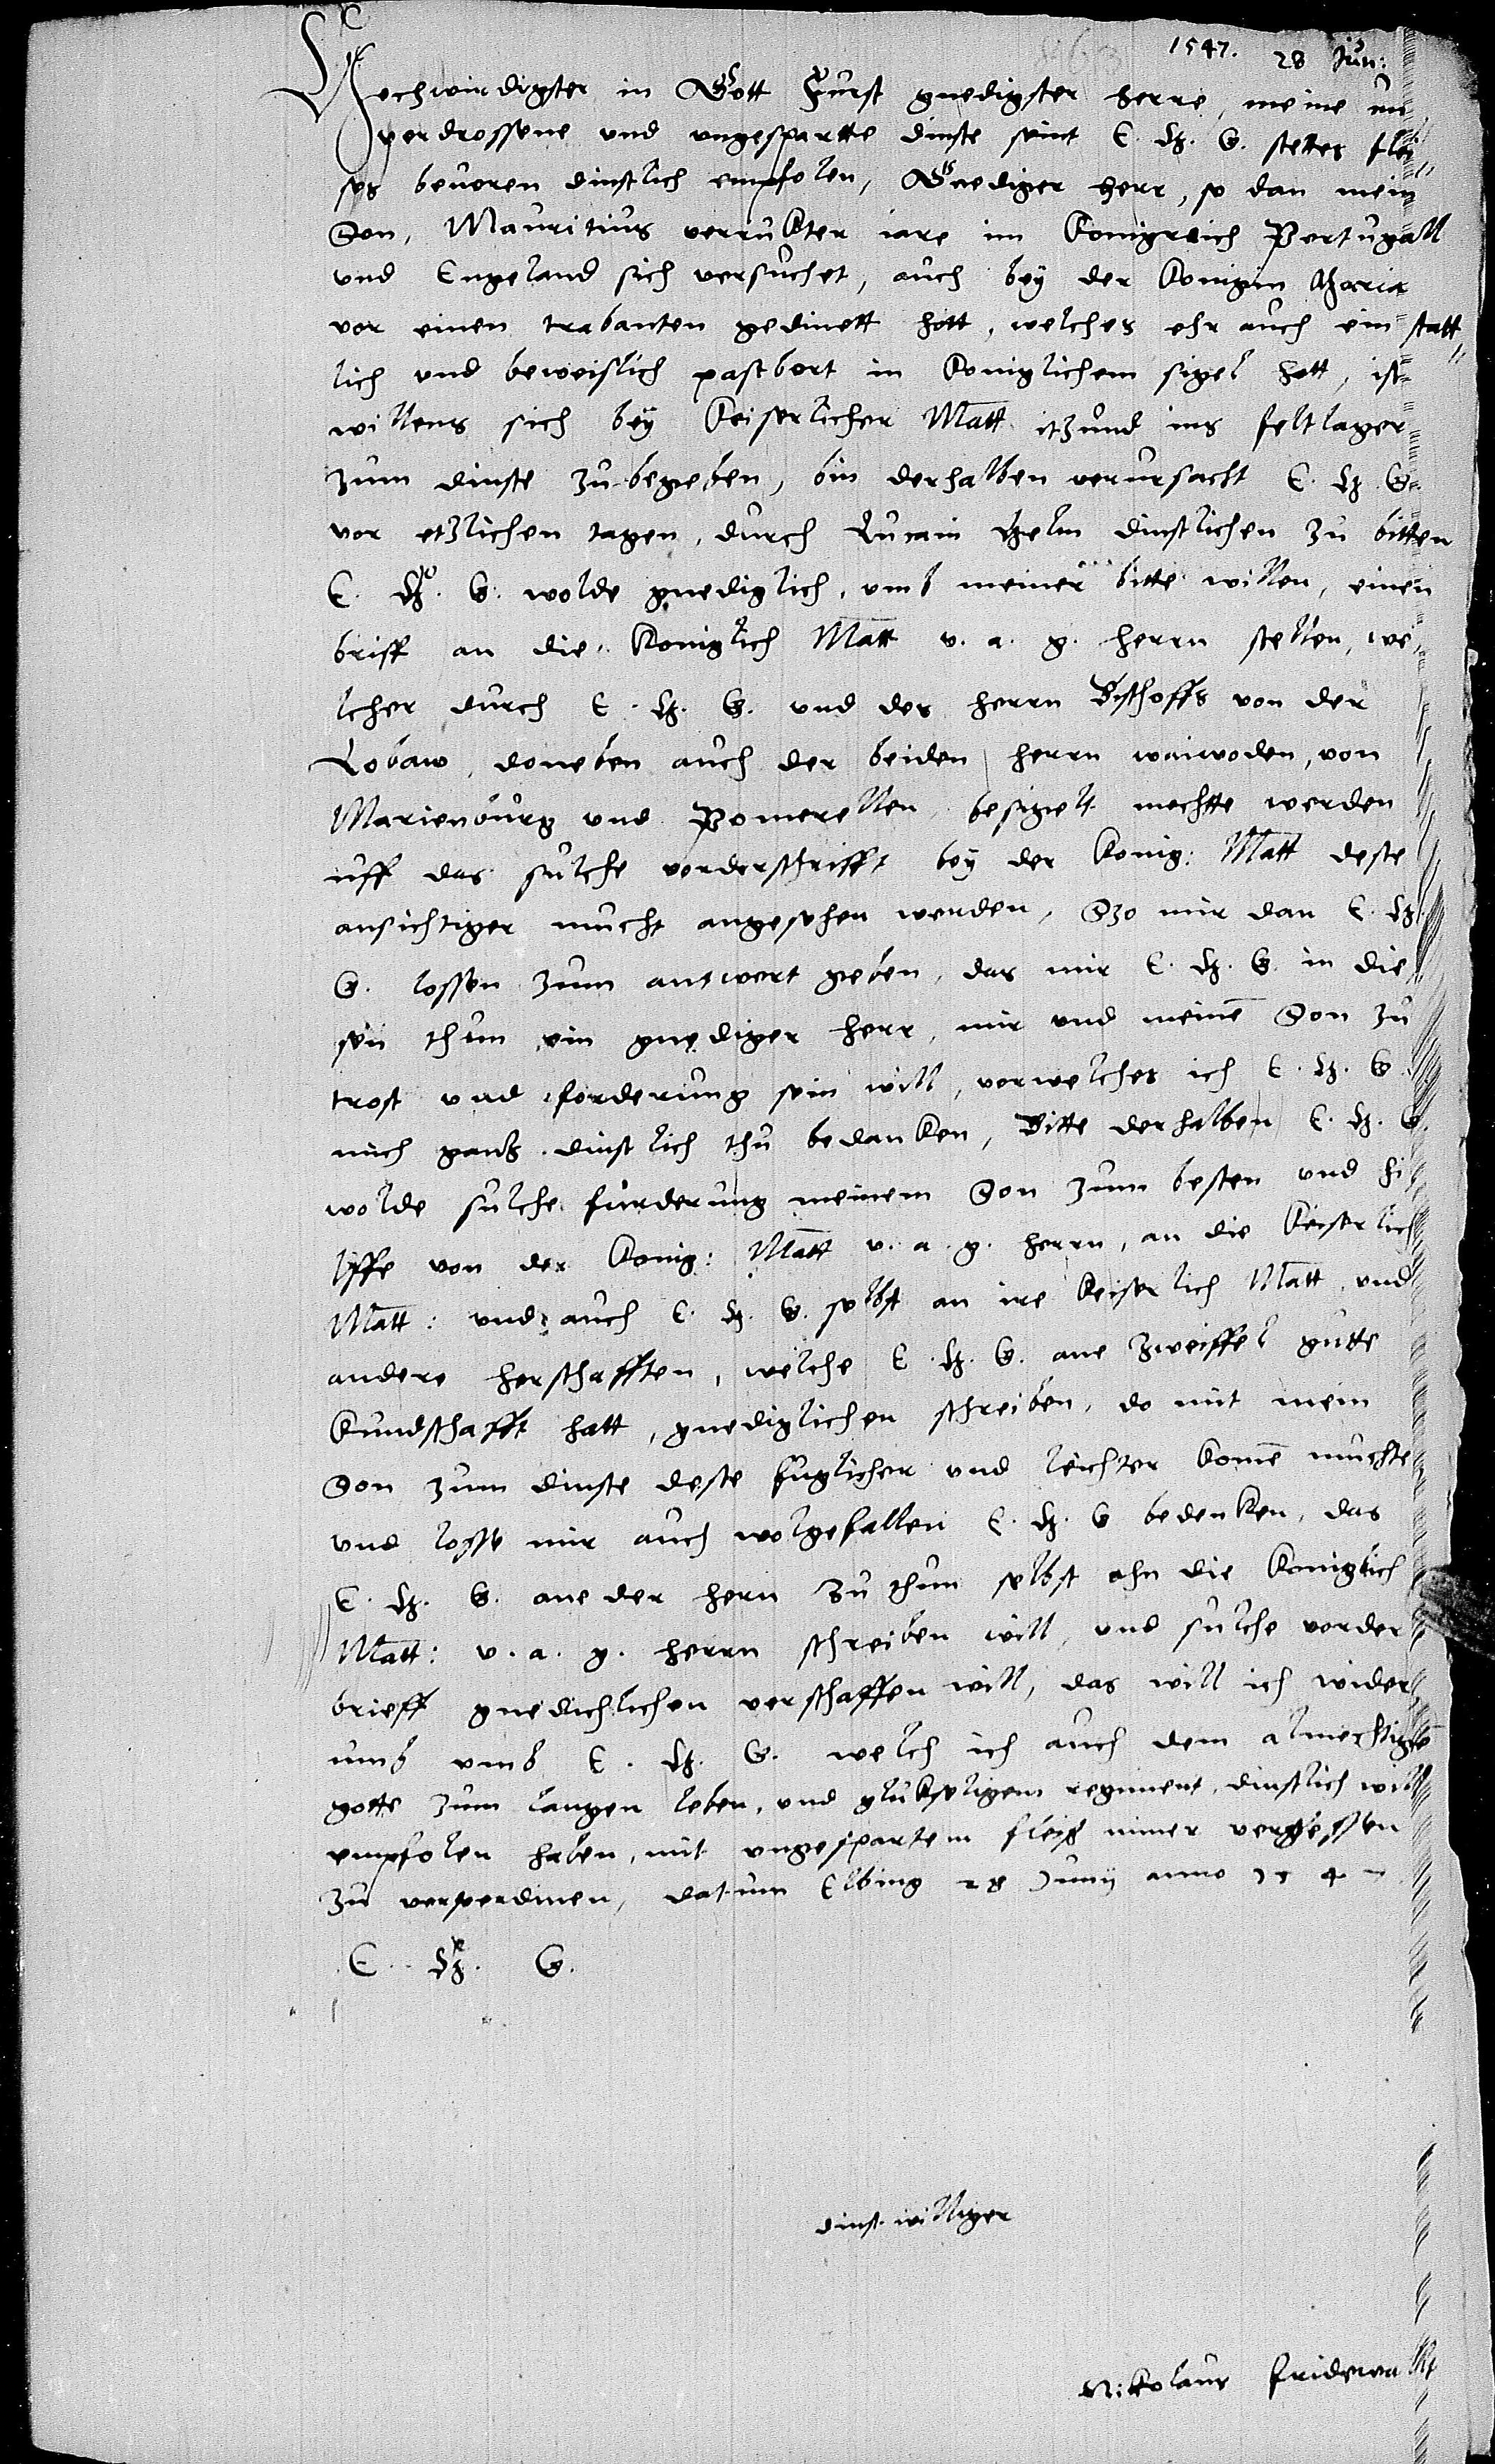 1547. 28 Jun:
Hochwirdigster in Gott Furst gnedigster herre, meine un
verdrossene und ungespartte dinste seint E. Hg. G. stettes flei
ses bevoren dinstlich empfolen, Gnediger herr, so dan mein
Son, Mauritius verrukter iare im Konigreich Portugall
und Engeland sich versuchet, auch bey der Konigin Maria
vor einen trabanten gedinett hott, welches ehr auch ein statt
lich und beweislich pastbort in Koniglichem sigel hott, ist
willens sich bey Keiserlicher Matt itzund ins feltlager
zum dinste zu begeben, bin derhalben verursacht E. Hg. G.
vor etzlichen tagen, durch dinstlichen zu bitten
E. Hg. G. wolde gnediglich, umb meiner bitte willen, einen
briff an die Koniglich Matt v. a. g. herrn stellen, we
lcher durch E. Hg. G. und des herrn Bischoffs von der
Lobaw, doneben auch der beiden herrn waiwoden, von
Marienburg und Pomerellen besigelt mochtte werden
uff das sulche vorderschrifft bey der Konig: Matt deste
ansichtiger mucht angesehen werden, Szo mir dan E. Hg.
G. lossen zum antwort geben, das mir E. Hg. G. in die
sen thun ein gnediger herr, mir und meinē Son zu
trost und forderung sein will, vor welches ich E. Hg. G.
mich gantz dinstlich thu bedanken, Bitte derhalben E. Hg. G.
wolde sulche furderung meinem Son zum besten und hi
lffe von der Konig: Matt v. a. g. herrn, an die Keiserlich
Matt: und auch E. Hg. G. selbst an ire Keiserlich Matt, und
andere herschafften, welche E. Hg. G. ane zweiffel gutte
kundschafft hatt, gnediglichen schreiben, do mit mein
Son zum dinste deste fuglicher und leichter komē muchte
und losse mir auch wolgefallen E. Hg. G bedenken, das
E. Hg. G. ane der hern zu thun selbst ahn die Koniglich
Matt: v. a. g. herrn schreiben will, und sulche vorder
brieff gnedichlichen verschaffen will, das will ich wider
umb umb E. Hg. G. welch ich auch dem almechtigē
gotte zum langen leben, und glukseligem regiment, dinstlich will
empfolen haben, mit ungespartem fleis nimer vergessen
zu verperdinen, datum Elbing 28 Junij anno 1547
E. Hg. G.
dinstwilliger
Nikolaus Fridewalt